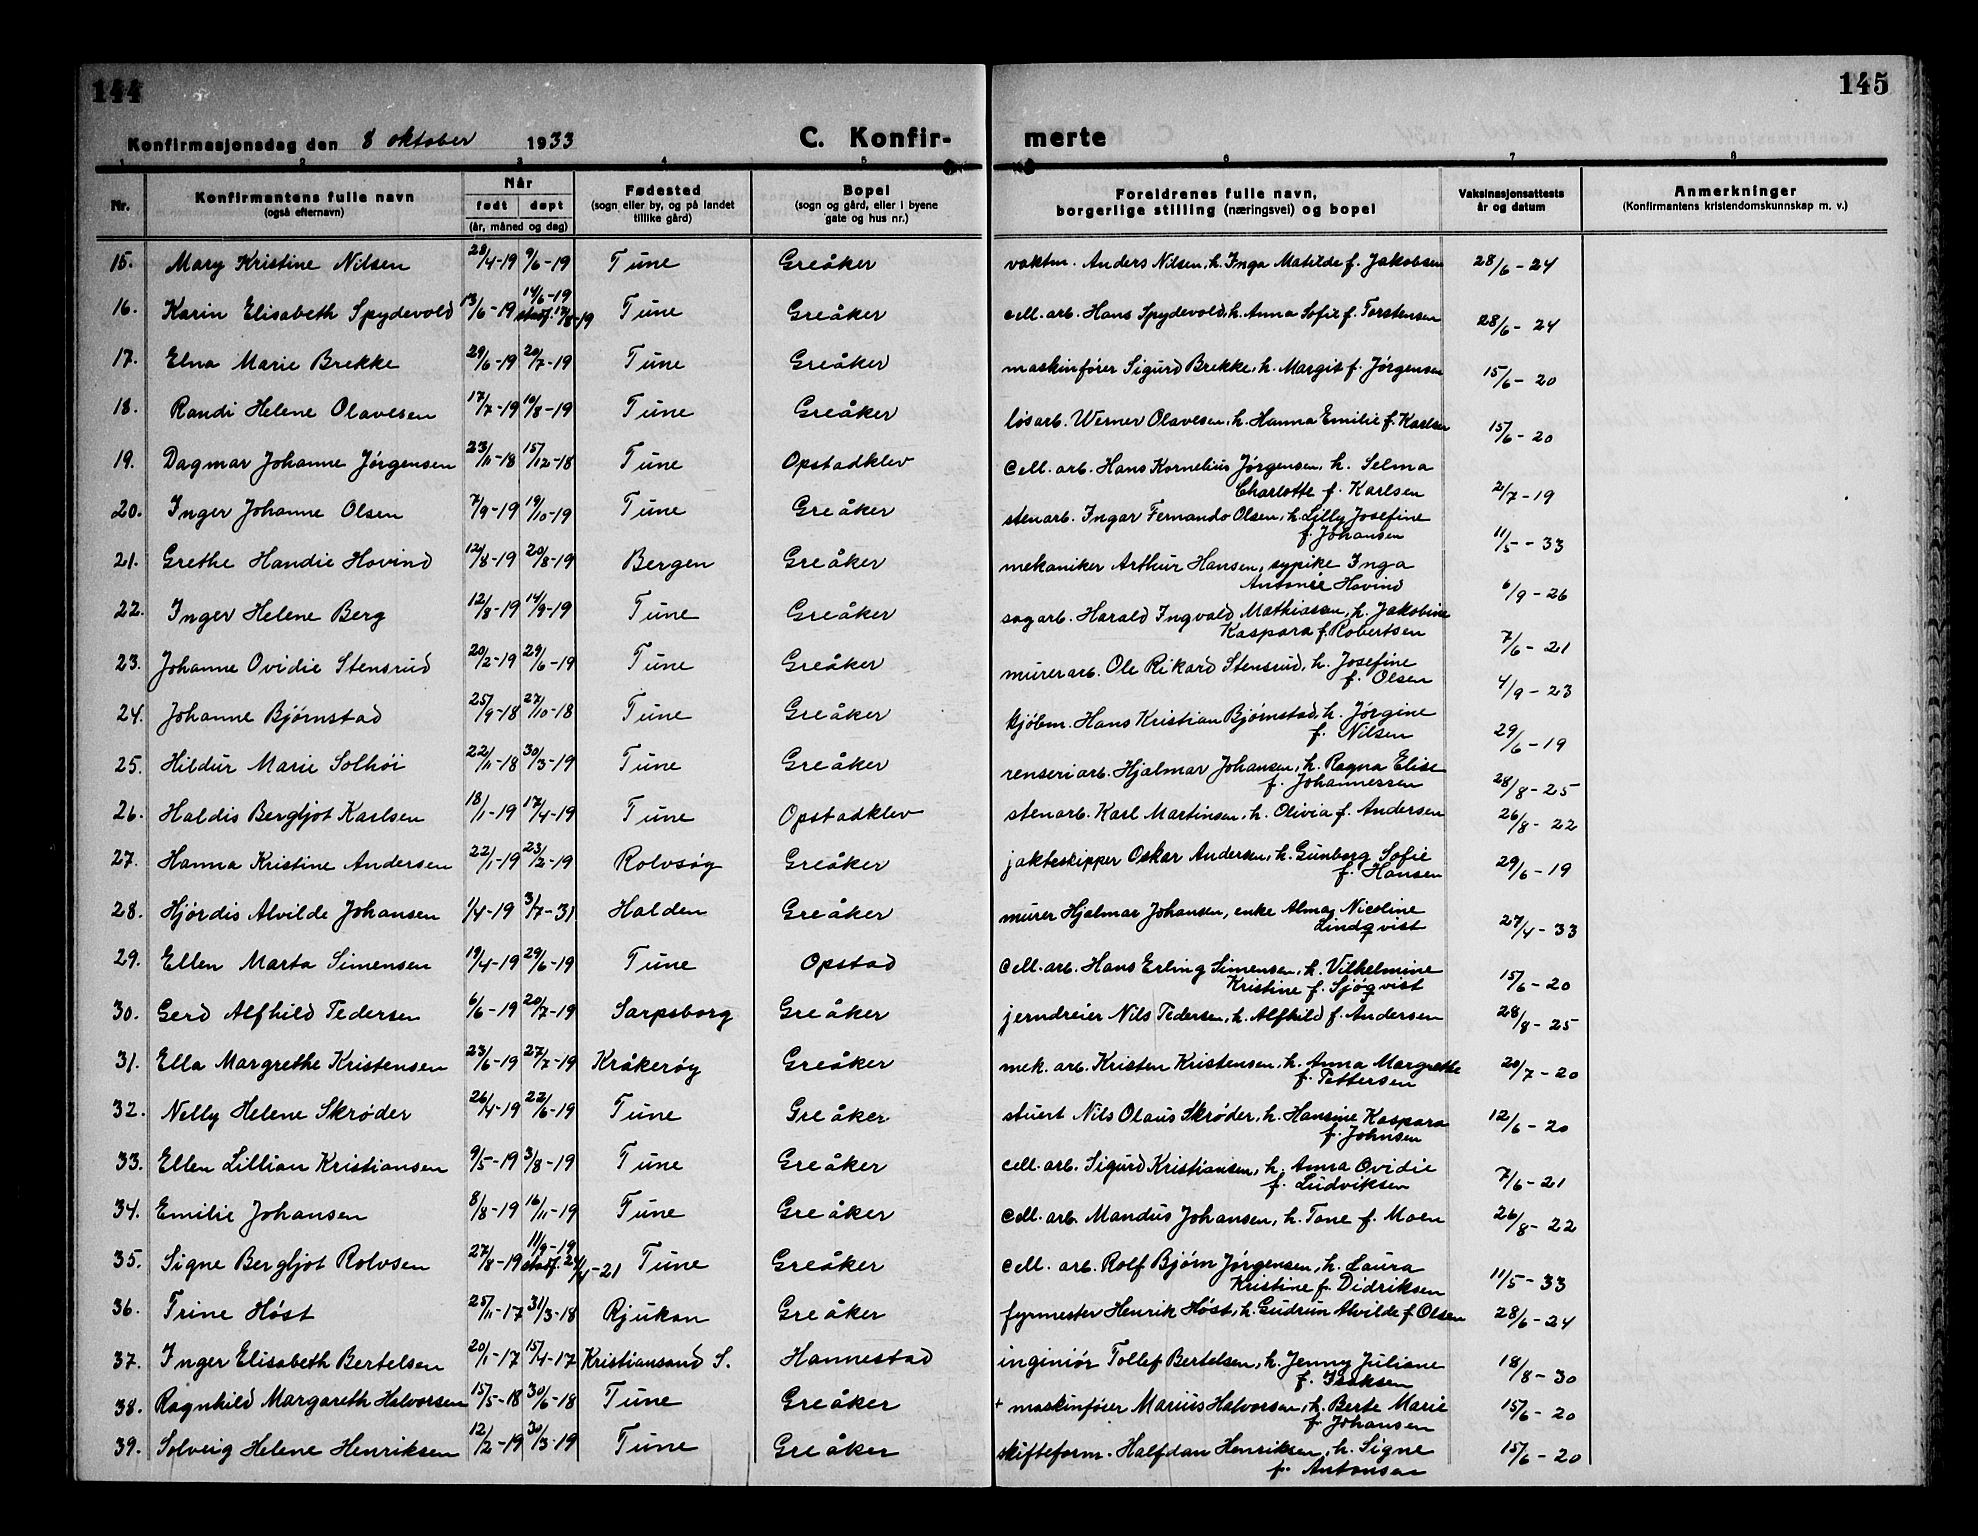 144
145
Konfirmasjonsdag den 8 oktober 1933 C. Konfir- merte
1 2 3 4 5 6 7 8
Nr. Konfirmantens fulle navn (også efternavn) Når født døpt (år, måned og dag) Fødested (sogn eller by, og på landet tillike gård) Bopel (sogn og gård, eller i byene gate og hus nr.) Foreldrenes fulle navn, borgerlige stilling (næringsvei) og bopel Vaksinasjonsattests år og datum Anmerkninger (Konfirmantens kristendomskunnskap m. v.)
15. Mary Kristine Nilsen 28/4-19 9/6-19 Tune Greåker vaktm. Anders Nilsen, h. Inga Matilde f. Jakobsen 28/6-24
16. Karin Elisabeth Spydevold 13/6-19 14/6-19 stadf. 17/8-19 Tune Greåker cell. arb. Hans Spydevold, h. Anna Sofie f. Torstensen 28/6-24
17. Elna Marie Brekke 29/6-19 20/7-19 Tune Greåker maskinfører Sigurd Brekke, h. Margit f. Jørgensen 15/6-20
18. Randi Helene Olavesen 17/7-19 10/8-19 Tune Greåker løsarb. Werner Olavesen, h. Hanna Emilie f. Karlsen 15/6-20
19. Dagmar Johanne Jørgensen 23/11-18 15/12-18 Tune Opstadklev Cell. arb. Hans Kornelius Jørgensen, h. Selma
Charlotte f. Karlsen 2/7-19
20. Inger Johanne Olsen 7/9-19 19/10-19 Tune Greåker stenarb. Ingar Fernando Olsen, h. Lilly Josefine
f. Johansen 11/5-33
21. Grethe Handie Hovind 12/8-19 20/8-19 Bergen Greåker mekaniker Arthur Hansen, sypike Inga
Antonie Hovind 6/9-26
22. Inger Helene Berg 12/8-19 14/9-19 Tune Greåker sagarb. Harald Ingvald Mathiasen, h. Jakobine
Kaspara f. Robertsen 7/6-21
23. Johanne Ovidie Stensrud 20/2-19 29/6-19 Tune Greåker murerarb. Ole Rikard Stensrud, h. Josefine
f. Olsen 4/9-23
24. Johanne Bjørnstad 25/9-18 27/10-18 Tune Greåker kjøbm. Hans Kristian Bjørnstad, h. Jørgine
f. Nilsen 29/6-19
25. Hildur Marie Solhøi 22/11-18 30/3-19 Tune Greåker renseriarb. Hjalmar Johansen, h. Ragna Elise
f. Johannessen 28/8-25
26. Haldis Bergljot Karlsen 18/1-19 17/4-19 Tune Opstadklev stenarb. Karl Martinsen, h. Olivia f. Andersen 26/8-22
27. Hanna Kristine Andersen 22/1-19 23/2-19 Rolvsøy Greåker jakteskipper Oskar Andersen, h. Gunborg Sofie
f. Hansen 29/6-19
28. Hjørdis Alvilde Johansen 1/4-19 3/7-31 Halden Greåker murer Hjalmar Johansen, enke Alma Nicoline
Lindqvist 27/4-33
29. Ellen Marta Simensen 19/4-19 29/6-19 Tune Opstad Cell. arb. Hans Erling Simensen, h. Vilhelmine
Kristine f. Sjøqvist 15/6-20
30. Gerd Alfhild Pedersen 6/6-19 20/7-19 Sarpsborg Greåker jerndreier Nils Pedersen, h. Alfhild f. Andersen 28/8-25
31. Ella Margrethe Kristensen 23/6-19 27/7-19 Kråkerøy Greåker mek. arb. Kristen Kristensen, h. Anna Margrethe
f. Pettersen 20/7-20
32. Nelly Helene Skrøder 26/4-19 22/6-19 Tune Greåker stuert Nils Olaus Skrøder, h. Hansine Kaspara
f. Johnsen 12/6-20
33. Ellen Lillian Kristiansen 9/5-19 3/8-19 Tune Greåker cell. arb. Sigurd Kristiansen, h. Anna Ovidie
f. Ludviksen 7/6-21
34. Emilie Johansen 8/8-19 16/11-19 Tune Greåker Cell. arb. Mandus Johansen, h. Tone f. Moen 26/8-22
35. Signe Bergljot Rolvsen 27/8-19 11/9-19 stadf. 24/4-21 Tune Greåker Cell. arb. Rolf Bjørn Jørgensen, h. Laura
Kristine f. Didriksen 11/5-33
36. Trine Høst 25/11-17 31/3-18 Rjukan Greåker fyrmester Henrik Høst, h. Gudrun Alvilde f. Olsen 28/6-24
37. Inger Elisabeth Bertelsen 20/1-17 15/4-17 Kristiansand S. Hannestad inginiør Tollef Bertelsen, h. Jenny Juliane
f. Isaksen 18/8-30
38. Ragnhild Margareth Halvorsen 15/5-18 30/6-18 Tune Greåker + maskinfører Marius Halvorsen, h. Berte Marie
f. Johansen 15/6-20
39. Solveig Helene Henriksen 12/2-19 30/3-19 Tune Greåker skifteform. Halfdan Henriksen, h. Signe
f. Antonsen 15/6-20